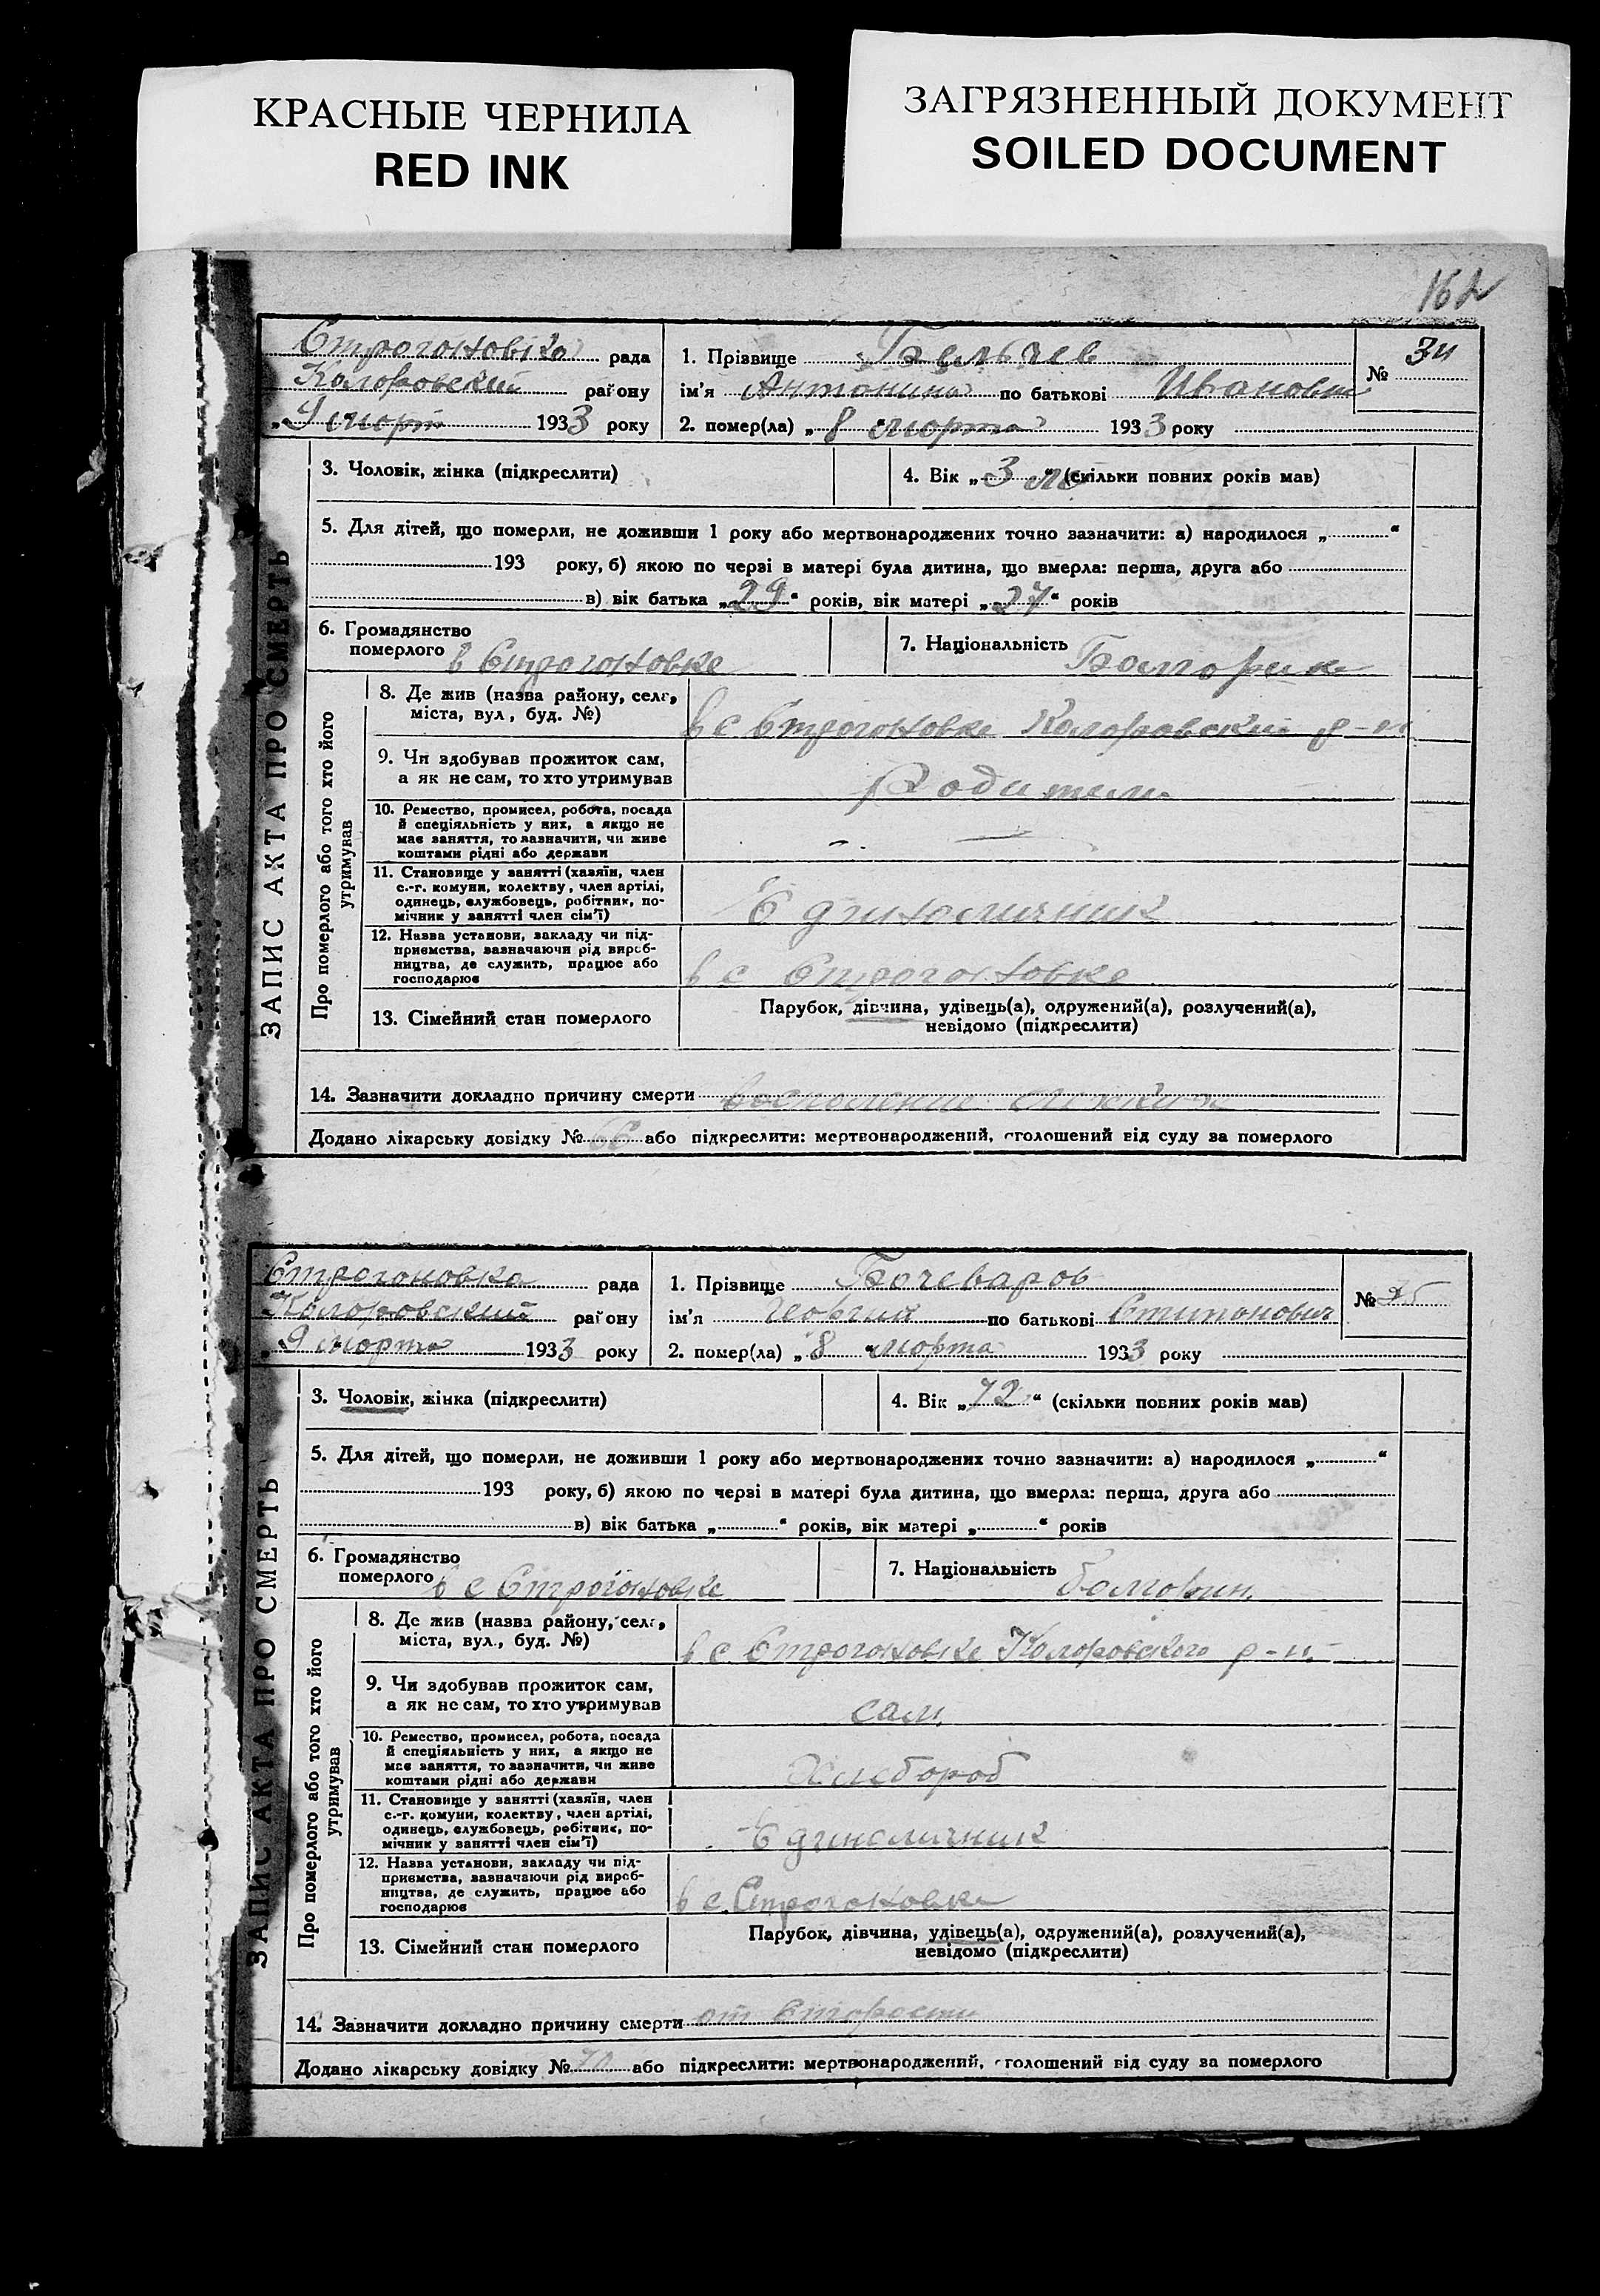 КРАСНЫЕ ЧЕРНИЛА
RED INK
ЗАГРЯЗНЕННЫЙ ДОКУМЕНТ
SOILED DOCUMENT
162
ЗАПИС АКТА ПРО СМЕРТЬ
Строгоновка рада
Коларовский району
„9 март 1933 року
1. Прізвище Бельчев
ім'я Антонина по батькові Ивановна
2. помер(ла) „8 марта 1933 року
№ 34
3. Чоловік, жінка (підкреслити)
4. Вік „3 ле“ (скільки повних років мав)
5. Для дітей, що померли, не доживши 1 року або мертвонароджених точно зазначити: а) народилося „ “
193 року, б) якою по черзі в матері була дитина, що вмерла: перша, друга або
в) вік батька „29“ років, вік матері „27“ років
6. Громадянство
померлого в Строгоновке
7. Національність Болгарка
Про померлого або того хто його
утримував
8. Де жив (назва району, села,
міста, вул., буд. №)
в с Строгоновке Коларовский р-н
9. Чи здобував прожиток сам,
а як не сам, то хто утримував
Родители
10. Ремество, промисел, робота, посада
й спеціяльність у них, а якщо не
має заняття, то зазначити, чи живе
коштами рідні або держави
11. Становище у занятті (хазяїн, член
с.-г. комуни, колектву, член артілі,
одинець, службовець, робітник, по-
мічник у занятті член сім'ї)
Единоличник
12. Назва установи, закладу чи під-
приємства, зазначаючи рід вироб-
ництва, де служить, працює або
господарює
в с Строгоновке
13. Сімейний стан померлого
Парубок, дівчина, удівець(а), одружений(а), розлучений(а),
невідомо (підкреслити)
14. Зазначити докладно причину смерти воспаление
Додано лікарську довідку № 66 або підкреслити: мертвонароджений, оголошений від суду за померлого
ЗАПИС АКТА ПРО СМЕРТЬ
Строгоновка рада
Коларовский району
„9 марта 1933 року
1. Прізвище Бочеваров
ім'я Георгий по батькові Стипонович
2. помер(ла) „8 марта 1933 року
№ 35
3. Чоловік, жінка (підкреслити)
4. Вік „72“ (скільки повних років мав)
5. Для дітей, що померли, не доживши 1 року або мертвонароджених точно зазначити: а) народилося „ “
193 року, б) якою по черзі в матері була дитина, що вмерла: перша, друга або
в) вік батька „ “ років, вік матері „ “ років
6. Громадянство
померлого в с Строгоновке
7. Національність болгарин
Про померлого або того хто його
утримував
8. Де жив (назва району, села,
міста, вул., буд. №)
в с Строгоновке Коларовского р-н
9. Чи здобував прожиток сам,
а як не сам, то хто утримував
сам
10. Ремество, промисел, робота, посада
й спеціяльність у них, а якщо не
має заняття, то зазначити, чи живе
коштами рідні або держави
Хлебороб
11. Становище у занятті (хазяїн, член
с.-г. комуни, колектву, член артілі,
одинець, службовець, робітник, по-
мічник у занятті член сім'ї)
Единоличник
12. Назва установи, закладу чи під-
приємства, зазначаючи рід вироб-
ництва, де служить, працює або
господарює
в с. Строгоновке
13. Сімейний стан померлого
Парубок, дівчина, удівець(а), одружений(а), розлучений(а),
невідомо (підкреслити)
14. Зазначити докладно причину смерти от старости
Додано лікарську довідку № або підкреслити: мертвонароджений, оголошений від суду за померлого